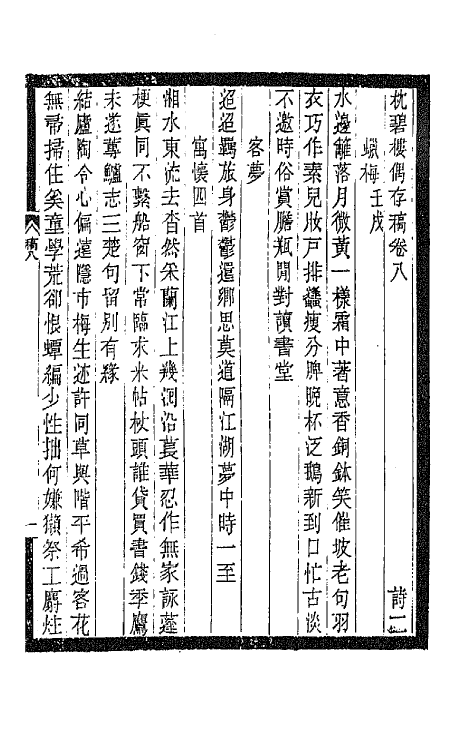 枕碧樓偶存稿卷八 詩二
蠟梅 壬戌
水邊籬落月微黃一樣霜中著意香銅鉢笑催坡老句羽
衣巧作素兒妝戸排蠭瘦分脾晚杯泛鵝新到口忙古淡
不邀時俗賞膽瓶閒對讀書堂
客夢
迢迢羈旅身鬱鬱還鄉思莫道隔江湖夢中時一至
寓懷四首
湘水東流去杳然采蘭江上幾洄沿萇華忍作無家詠蓬
梗眞同不繫船窗下常臨求米帖杖頭誰貸買書錢季鷹
未遂蓴鱸志三楚句留別有緣
結廬陶令心偏遠隱市梅生迹許同草與階平希過客花
無帚掃任奚童學荒卻恨蟫編少性拙何嫌獺祭工麝炷
稿八
一